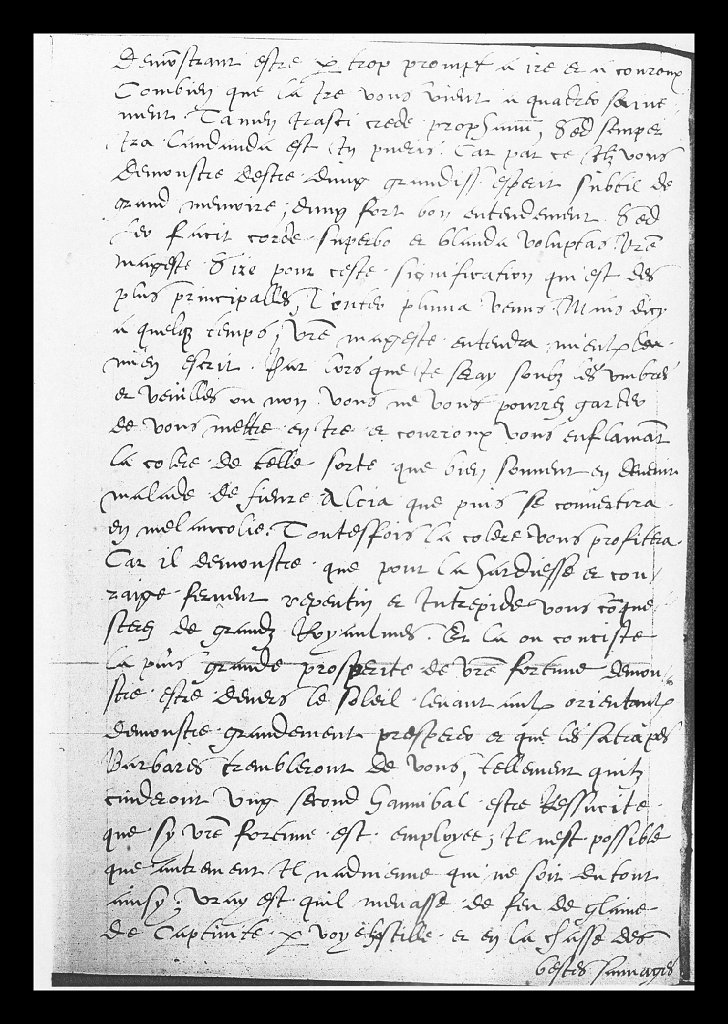 demõstrant estre p trop prompt a ire et a courroux
Combien que la ire vous vient a quatres
ment. Tamen irasci crede prophanũ, Sed semper
ira est in pueris. Car par ce Ilz vous
demonstre destre dung grandiss. esperit subtil de
grand memoire, dung fort bon entendement. Sed
facit corde superbo et blanda voluptas. Vrẽ
mageste Sire pour ceste signification qui est des
plus principalles, venus Mais dicy
a quelq temps, vrẽ mageste entendra mieulx
mien escrit. Par lors que Ie seray soubz les umbres
et veuilles ou non vous ne vous pourrez garder
de vous mettre en ire et courroux vous enflamãt
la colere de telle sorte que bien souvent en devenir
malade de fievre que puis se convertira
en melancolie. Toutesfois la colere vous profitera.
Car il demonstre que pour la hardiesse et cou
raige fervent repentin et Intrepide vous cõque
sterez de grandz Royaulmes. Et la ou conciste
la plus grande prosperite de vrẽ fortune demon
stre estre devers le soleil levant aulx orientaulx
demonstre grandement prosperer et que les satrapes
Barbares trembleront de vous, tellement quilz
cuideront ung second hannibal estre ressucite
que sy vrẽ fortune est employee, Il nest possible
que autrement Il nadvienne qui ne soit du tout
ainsy, vray est quil menasse de feu de glaive
de Captivite p voye hostille et en la chasse des
bestes sauvages